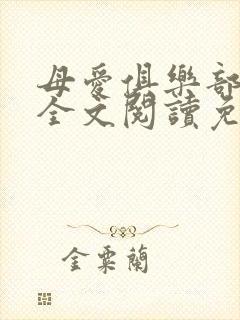 母愛俱樂部
全文閱讀免
金粟蘭